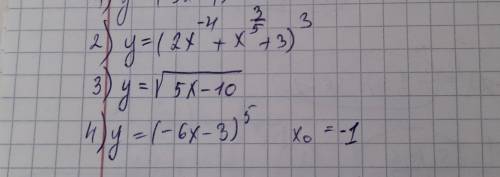 2) y = (2x⁻⁴ + x^(3/5) + 3)³
3) y = √(5x-10)
4) y = (-6x-3)⁵ x₀ = -1